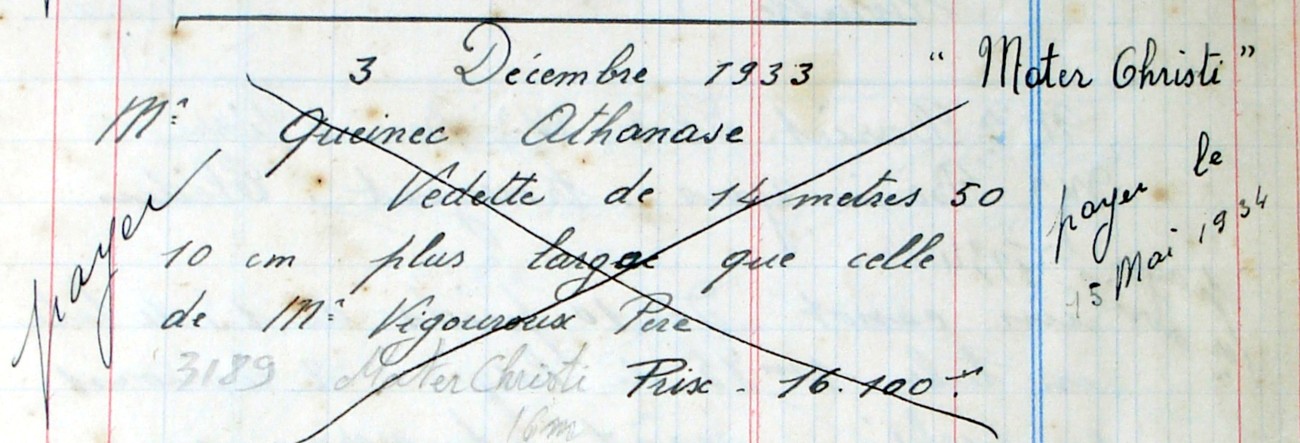 3 Décembre 1933 "Mater Christi"
Mr Queinec Athanase
Vêdette de 14 metres 50
10 cm plus large que celle
de Mr Vigouroux Pere
3189 Mater Christi Prix - 16.100 -
16m
payer
payer le
15 Mai 1934